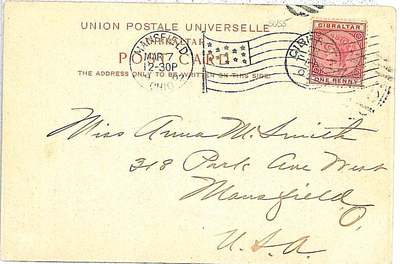 UNION POSTALE UNIVERSELLE
GIBRALTAR
POST CARD
THE ADDRESS ONLY TO BE WRITTEN ON THIS SIDE
MANSFIELD
MAR 7
12-30P
OHIO
GIBRALTAR
ONE PENNY
Miss Anna M. Smith
318 Park Ave West
Mansfield O.
U.S.A